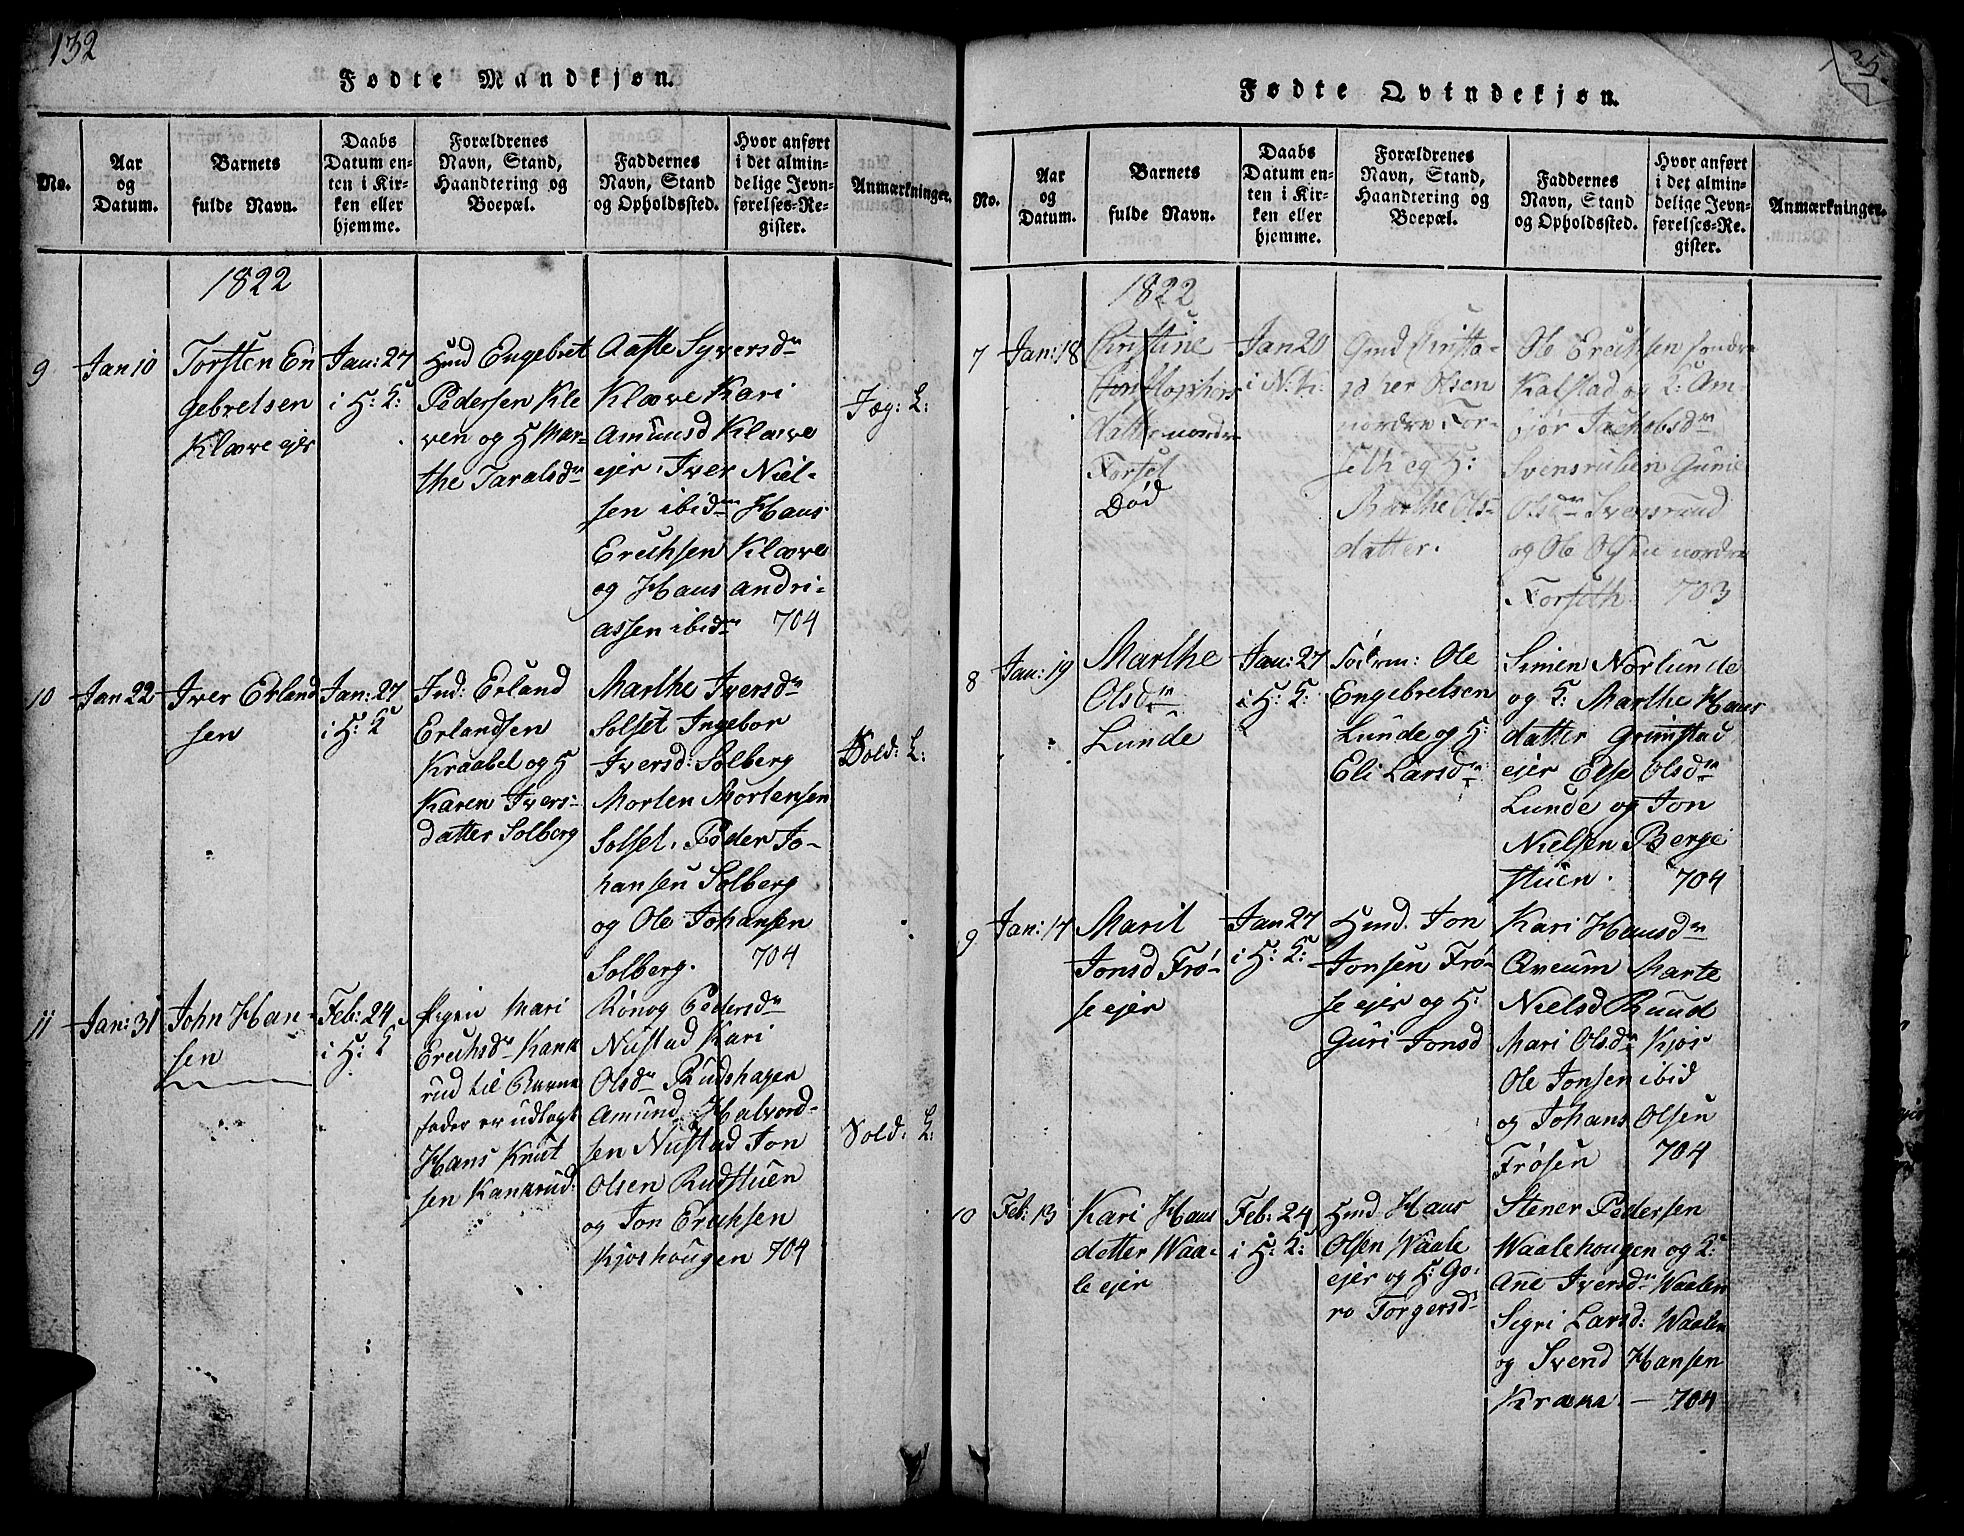 132
Fødte Mandkjøn.
No.
Aar
og
Datum.
Barnets
fulde Navn.
Daabs
Datum en-
ten i Kir-
ken eller
hjemme.
Forældrenes
Navn, Stand,
Haandtering og
Boepæl.
Faddernes
Navn, Stand
og Opholdssted.
Hvor anført
i det almin-
delige Jevn-
førelses-Re-
gister.
Anmærkninger.
1822
9
Jan 10
Torsten En
gebretsen
Klæve ejer
Jan: 27
i H: K:
Huusd Engebret
Pedersen Kle
ven og H Mar-
the Taralsdr
Aaste Syversdr
Klæve Kari
Amunsd Klæve
ejer, Iver Niel-
sen ibidm Hans
Erichsen Klæve
og Hans Andri-
assen ibidm 704
Jæg: L:
10
Jan 22
Iver Erland
sen
Jan: 27
i H: K
Ind: Erland
Erlandsen
Kraabel og H
Karen Ivers-
datter Solberg
Marthe Iversdr
Solset Ingebor
Iversd: Solberg
Morten Mortensen
Solset. Peder Jo-
hansen Solberg
og Ole Johansen
Solberg. 704
Sold: L:
11
Jan: 31
John Han-
sen
Feb: 24
i H: K
Pigen Mari
Erichsdr Kank
rud til Barne
fader er udlagt
Hans Knut
sen Kankrud
Rønog Pedersdr
Nustad Kari
Olsdr Rudshagen
Amund Halvord-
sen Nustad Jon
Olsen Rudstuen
og Jon Erichsen
Kjoshougen 704
Sold: L:
135.
Fødte Qvindekjøn.
No.
Aar
og
Datum.
Barnets
fulde Navn.
Daabs
Datum en-
ten i Kir-
ken eller
hjemme.
Forældrenes
Navn, Stand,
Haandtering og
Boepæl.
Faddernes
Navn, Stand
og Opholdssted.
Hvor anført
i det almin-
delige Jevn-
førelses-Re-
gister.
Anmærkninger.
1822
7
Jan: 18
Christine
Christophers
datter nordre
Forset
Død
Jan 20
i N: K:
Gmd Christo-
pher Olsen
nordre For-
seth og H:
Marthe Ols-
datter.
Ole Erichsen søndre
Kalstad og K: Am-
bjør Jachobsdr
Svensrubein Gunie
Olsdr Svensruud
og Ole Olsen nordre
Forseth 703
8
Jan: 19
Marthe
Olsdr
Lunde
Jan: 27
i H: K:
Føderm: Ole
Engebretsen
Lunde og H:
Eli Larsdr
Simen Norlunde
og K: Marthe Hans
datter Grimstad
ejer Else Olsdr
Lunde og Jon
Nielsen Berge
stuen. 704
9
Jan: 17
Marit
Jonsd Frø-
se ejer
Jan 27
i H: K:
Hmd. Jon
Jonsen Frø-
se ejer og H:
Guri Jonsd
Kari Hansdr
Qveum Marte
Nielsd Ruud
Mari Olsdr Kjos
Ole Jonsen ibid
og Johans Olsen
Frøsen 704
10
Feb: 13
Kari Hans
datter Waa-
le ejer
Feb: 24
i H: K:
Hmd. Hans
Olsen Waale
ejer og H: Go-
ro Torgersdr
Stener Pedersen
Waalehougen og K:
Ane Iversdr Waalen
Sigri Larsd: Waalen
og Svend Hansen
Kræke — 704